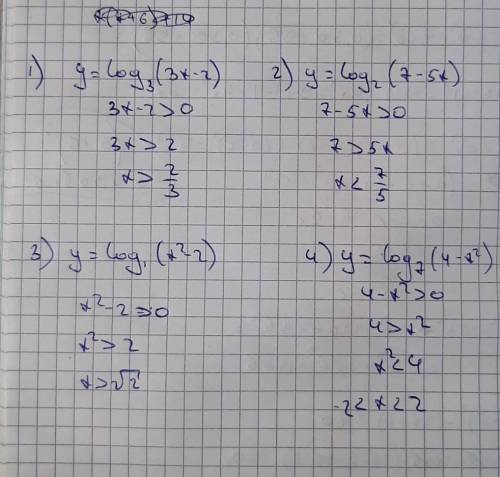 1) y = log₃ (3x-2)
3x-2>0
3x>2
x> 2/3
2) y = log₂ (7-5x)
7-5x>0
7>5x
x< 7/5
3) y = log₁ (x²-2)
x²-2>0
x²>2
x>√2
4) y = log₇ (4-x²)
4-x²>0
4>x²
x²<4
-2<x<2